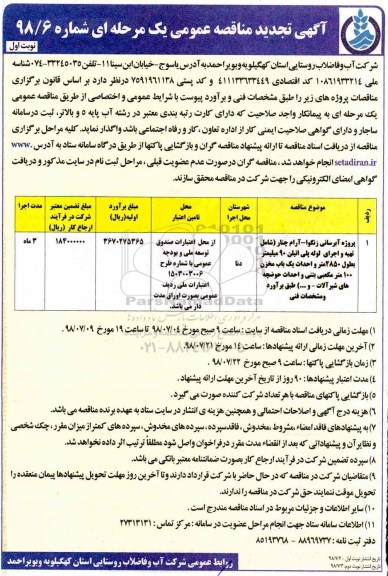 آگهی تجدید مناقصه عمومی یک مرحله ای شماره ۹۸/۶
نوبت اول
شرکت آب و فاضلاب روستایی استان کهگیلویه وبویراحمد به آدرس یاسوج-خیابان ابن سینا۱۱-تلفن۳۳۲۴۵۰۳۵-۰۷۴شناسه
ملی ۱۰۸۶۱۹۳۳۲۱۴ کد اقتصادی ۴۱۱۱۳۳۶۳۳۴۴۹ و کد پستی ۷۵۹۱۹۶۱۱۳۸ درنظر دارد بر اساس قانون برگزاری
مناقصات پروژه های زیر را طبق مشخصات فنی و برآورد پیوست با شرایط عمومی و اختصاصی از طریق مناقصه عمومی
یک مرحله ای به پیمانکار واجد صلاحیت که دارای کارت رتبه بندی معتبر در رشته آب پایه ۵ و بالاتر، ثبت درسامانه
ساجار و دارای گواهی صلاحیت ایمنی کار از اداره تعاون ، کار و رفاه اجتماعی باشد واگذار نماید. کلیه مراحل برگزاری
مناقصه از دریافت اسناد مناقصه تا ارائه پیشنهاد مناقصه گران و بازگشایی پاکتها از طریق درگاه سامانه ستاد به آدرس www.
setadiran.ir انجام خواهد شد ، مناقصه گران درصورت عدم عضویت قبلی ، مراحل ثبت نام در سایت مذکور و دریافت
گواهی امضای الکترونیکی را جهت شرکت در مناقصه محقق سازند.
ردیف | موضوع مناقصه | شهرستان محل اجرا | محل تامین اعتبار | مبلغ برآورد اولیه(ریال) | مبلغ تضمین معتبر شرکت در فرآیند ارجاع کار (ریال) | مدت اجرا
۱ | پروژه آبرسانی زنگوا-آرام چنار (شامل تهیه و اجرای لوله پلی اتیلن ۹۰ میلیمتر بطول ۲۸۵۰متر و احداث یک باب مخزن ۱۰۰ متر مکعبی بتنی و احداث حوضچه های شیرآلات - و ...) طبق برآورد ومشخصات فنی | دنا | از محل اعتبارات صندوق توسعه ملی و بودجه عمومی با شماره طرح ۱۵۰۳۰۰۳۰۰۶ اعتبارات ملی ردیف عمومی بصورت اوراق مدت دار می باشد. | ۳۶۷۰۲۷۵۳۶۵ | ۱۸۴۰۰۰۰۰۰ | ۳ ماه
۱) مهلت زمانی دریافت اسناد مناقصه از سایت : ساعت ۹ صبح مورخ ۹۸/۰۷/۰۴ تا ساعت ۱۹ مورخ ۹۸/۰۷/۰۹.
۲) آخرین مهلت زمانی ارائه پیشنهادها: ساعت ۱۴ مورخ ۹۸/۰۷/۲۱
۳) زمان بازگشایی پاکتها: ساعت ۹ صبح مورخ ۹۸/۰۷/۲۲.
۴) مدت اعتبار پیشنهادها : ۹۰ روز از تاریخ آخرین مهلت ارائه پیشنهاد .
۵) بازگشایی پاکتهای مناقصه با هر تعداد شرکت کننده صورت می گیرد .
۶) هزینه درج آگهی و اصلاحات احتمالی و همچنین هزینه ی انتشار در سایت ستاد به عهده برنده مناقصه می باشد.
۷) به پیشنهادهای فاقد امضاء ، مشروط ، مخدوش ، فاقد سپرده ، سپرده های مخدوش ، سپرده های کمتر از میزان مقرر ، چک شخصی
و نظایر آن و پیشنهاداتی که بعد از انقضاء مدت مقرر در فراخوان واصل شود مطلقاً ترتیب اثر داده نخواهد شد.
۸) سپرده تضمین شرکت در فرآیند ارجاع کار بصورت ضمانتنامه معتبر بانکی می باشد.
۹) متقاضیان شرکت در مناقصه که در حال حاضر با شرکت قرارداد دارند و تا آخرین روز مهلت تحویل پیشنهادها پیمان منعقده را
تحویل موقت ننمایند حق شرکت در مناقصه را ندارند.
۱۰) سایر اطلاعات و جزئیات مربوط در اسناد مناقصه مندرج است .
۱۱) اطلاعات سامانه ستاد جهت انجام مراحل عضویت در سامانه : مرکز تماس : ۲۷۳۱۳۱۳۱
دفتر ثبت نام : ۸۸۹۶۹۷۳۷ - ۸۵۱۹۳۷۶۸
روابط عمومی شرکت آب و فاضلاب روستایی استان کهگیلویه وبویراحمد
تاریخ انتشار نوبت اول: ۹۸/۷/۲
تاریخ انتشار نوبت دوم: ۹۸/۷/۳